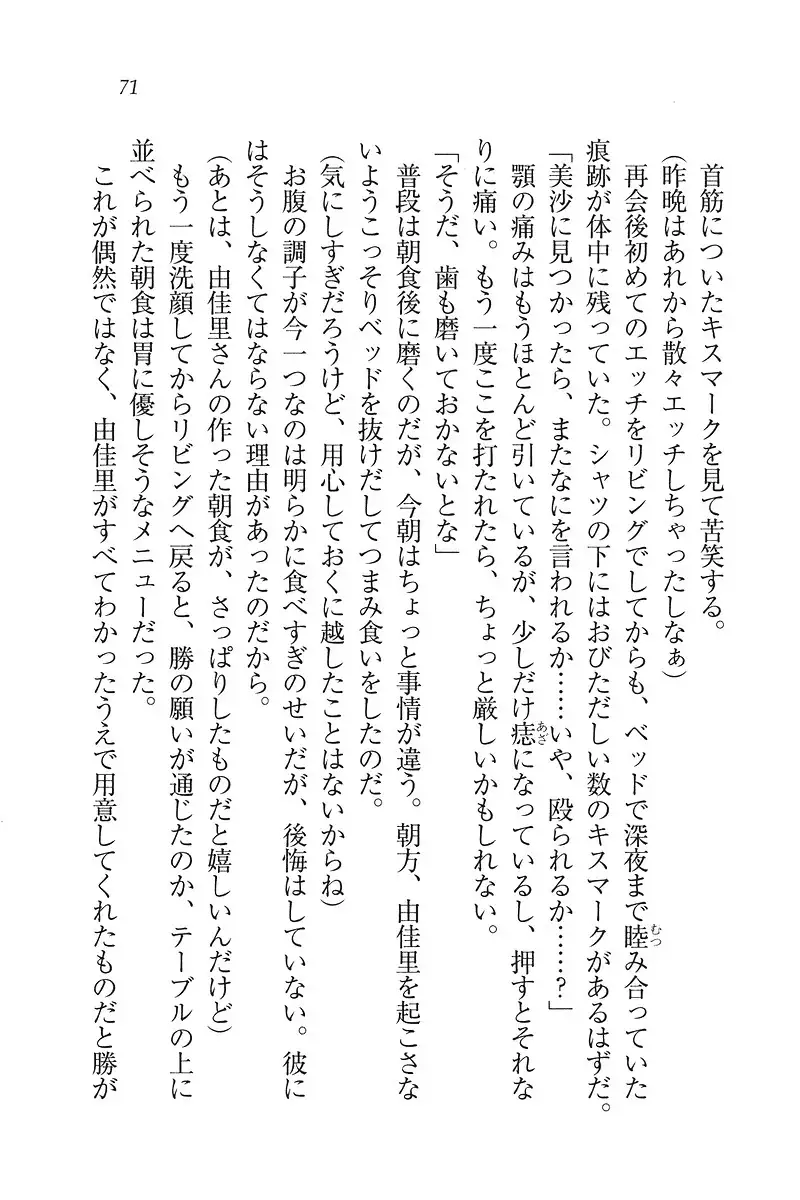 71
首筋についたキスマークを見て苦笑する。
(昨晩はあれから散々エッチしちゃったしなぁ)
再会後初めてのエッチをリビングでしてからも、ベッドで深夜まで睦み合っていた
痕跡が体中に残っていた。シャツの下にはおびただしい数のキスマークがあるはずだ。
「美沙に見つかったら、またなにを言われるか……いや、殴られるか……?」
顎の痛みはもうほとんど引いているが、少しだけ痣になっているし、押すとそれな
りに痛い。もう一度ここを打たれたら、ちょっと厳しいかもしれない。
「そうだ、歯も磨いておかないとな」
普段は朝食後に磨くのだが、今朝はちょっと事情が違う。朝方、由佳里を起こさな
いようこっそりベッドを抜けだしてつまみ食いをしたのだ。
(気にしすぎだろうけど、用心しておくに越したことはないからね)
お腹の調子が今一つなのは明らかに食べすぎのせいだが、後悔はしていない。彼に
はそうしなくてはならない理由があったのだから。
(あとは、由佳里さんの作った朝食が、さっぱりしたものだと嬉しいんだけど)
もう一度洗顔してからリビングへ戻ると、勝の願いが通じたのか、テーブルの上に
並べられた朝食は胃に優しそうなメニューだった。
これが偶然ではなく、由佳里がすべてわかったうえで用意してくれたものだと勝が